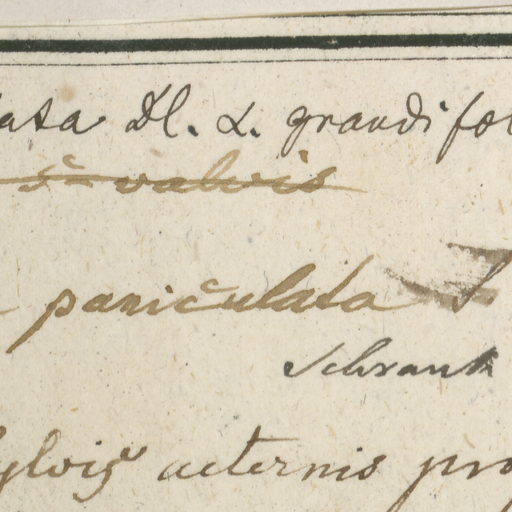 ata Dl. α. grandifol
5-valvis
paniculata
Schrank
sylvis aeternis pro